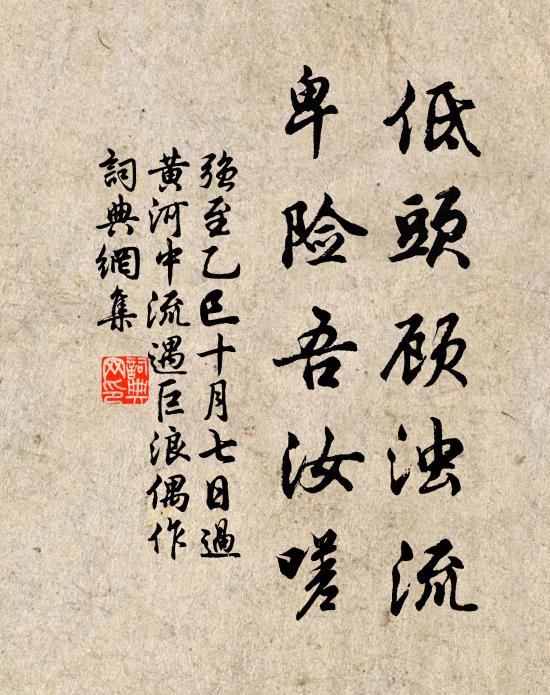 低頭顾浊流
卑险吾汝嗟
强至乙巳十月七日過
黄河中流遇巨浪偶作
詞典網集
詞典
网印